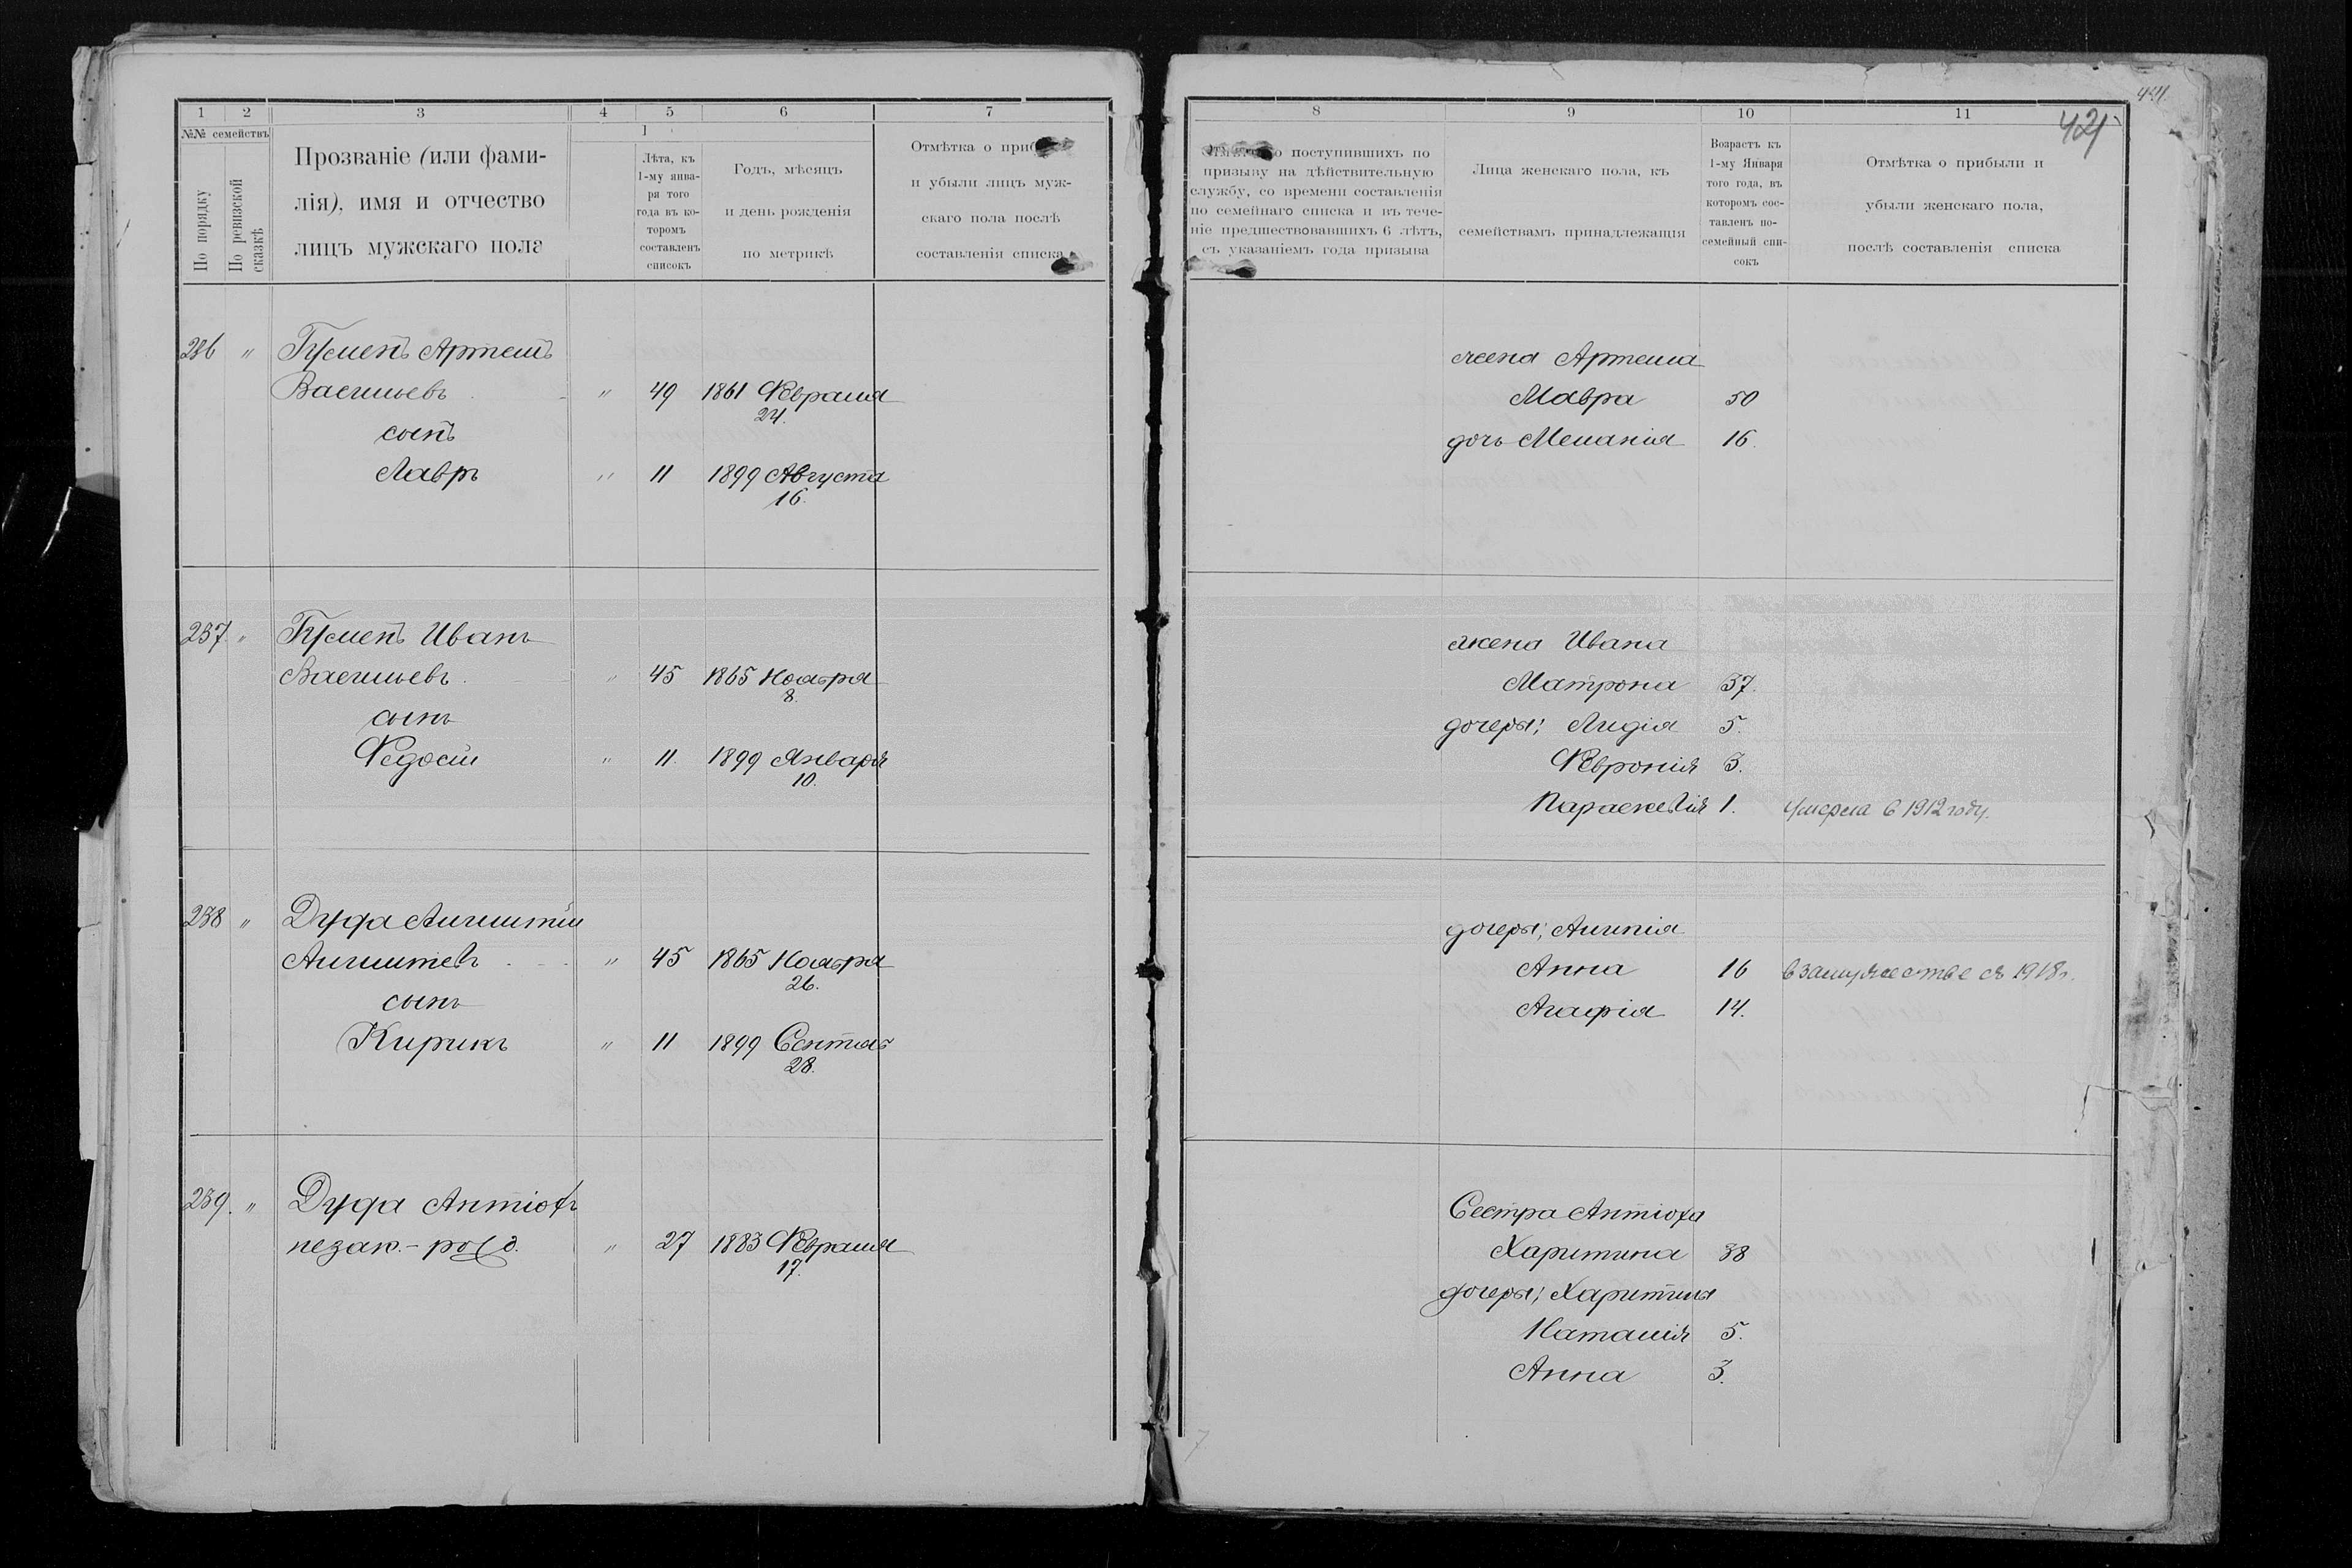 421
421
1
2
3
4
5
6
7
№№ семействъ
По порядку
По ревизской сказкѣ
Прозваніе (или фами-
лія), имя и отчество
лицъ мужскаго пола
Лѣта, къ
1-му янва-
ря того
года въ ко-
торомъ
составленъ
списокъ
Годъ, мѣсяцъ
и день рожденія
по метрикѣ
Отмѣтка о приб
и убыли лицъ муж-
скаго пола послѣ
составленія списка
236 " Гуменъ Артемъ
Васильевъ " 49 1861 Февраля
24.
сынъ
Лавръ " 11 1899 Августа
16.
237. " Гуменъ Иванъ
Васильевъ. " 45 1865 Ноября
8.
сынъ
Федосій " 11. 1899 Января
10.
238 " Дуда
" 45 1865 Ноября
26.
сынъ
Кирикъ " 11 1899 Сентяб
28.
239. " Дуда Антіохъ
незак.-рожд. " 27 1883 Февраля
17.
8
9
10
11
о поступившихъ по
призыву на дѣйствительную
службу, со времени составленія
по семейнаго списка и въ тече-
ніе предшествовавшихъ 6 лѣтъ,
съ указаніемъ года призыва
Лица женскаго пола, къ
семействамъ принадлежащія
Возрастъ къ
1-му Января
того года, въ
которомъ сос-
тавленъ по-
семейный спи-
сокъ
Отмѣтка о прибыли и
убыли женскаго пола,
послѣ составленія списка
жена Артема
Мавра 50
дочь Меланія 16.
жена Ивана
Матрона 37.
дочеры; Лидія 5.
Февронія 3.
Параскевія 1. умерла в 1912 году.
дочеры;
Анна 16 в замужестве съ 1918 г.
Агафія 14.
Сестра Антіоха
Харитина 38
дочеры; Харитины
Наталія 5.
Анна 3.